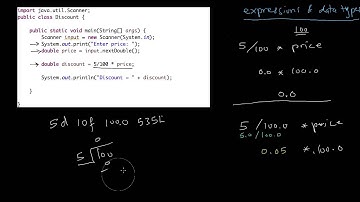 import java.util.Scanner;
public class Discount {
public static void main(String[] args) {
Scanner input = new Scanner(System.in);
System.out.print("Enter price: ");
double price = input.nextDouble();
double discount = 5/100 * price;
System.out.println("Discount = " + discount);
}
}
expressions & data types
100
5/100 * price
0.0 * 100.0
0.0
5/100.0 * price
5.0/100.0
0.05 * 100.0
5d 10f 100.0 535L
0
5 100
0